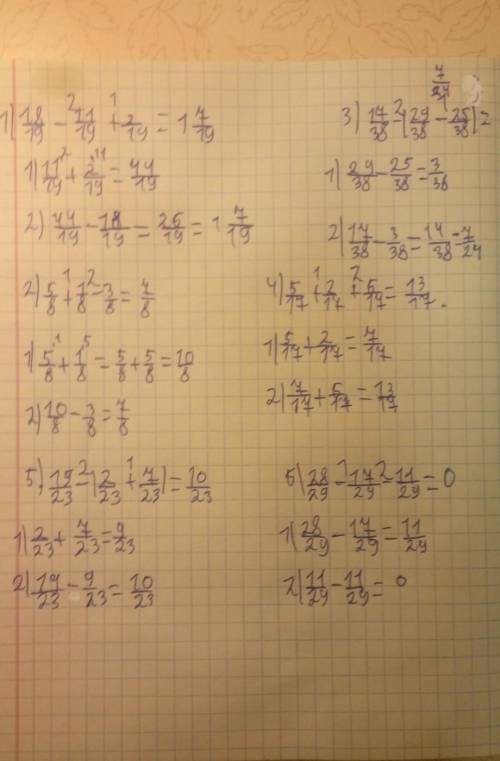 1) 18/19 - 11/19 + 2/19 = 1 7/19
1) 11/19 + 2/19 = 44/19
2) 44/19 - 18/19 = 26/19 = 1 7/19
2) 5/8 + 1/8 - 3/8 = 7/8
1) 5/8 + 1/8 = 5/8 + 5/8 = 10/8
2) 10/8 - 3/8 = 7/8
5) 19/23 - (2/23 + 7/23) = 10/23
1) 2/23 + 7/23 = 9/23
2) 19/23 - 9/23 = 10/23
7/24
3) 17/38 - (29/38 - 25/38) =
1) 29/38 - 25/38 = 3/38
2) 17/38 - 3/38 = 14/38 = 7/24
4) 5/17 + 2/17 + 6/17 = 13/17.
1) 5/17 + 2/17 = 7/17
2) 7/17 + 6/17 = 13/17
6) 28/29 - 17/29 - 11/29 = 0
1) 28/29 - 17/29 = 11/29
2) 11/29 - 11/29 = 0